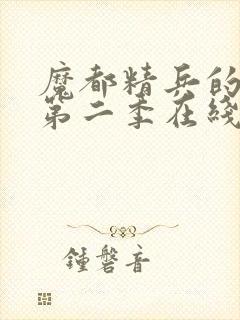 魔都精兵的
第二季在綫
鍾磬音